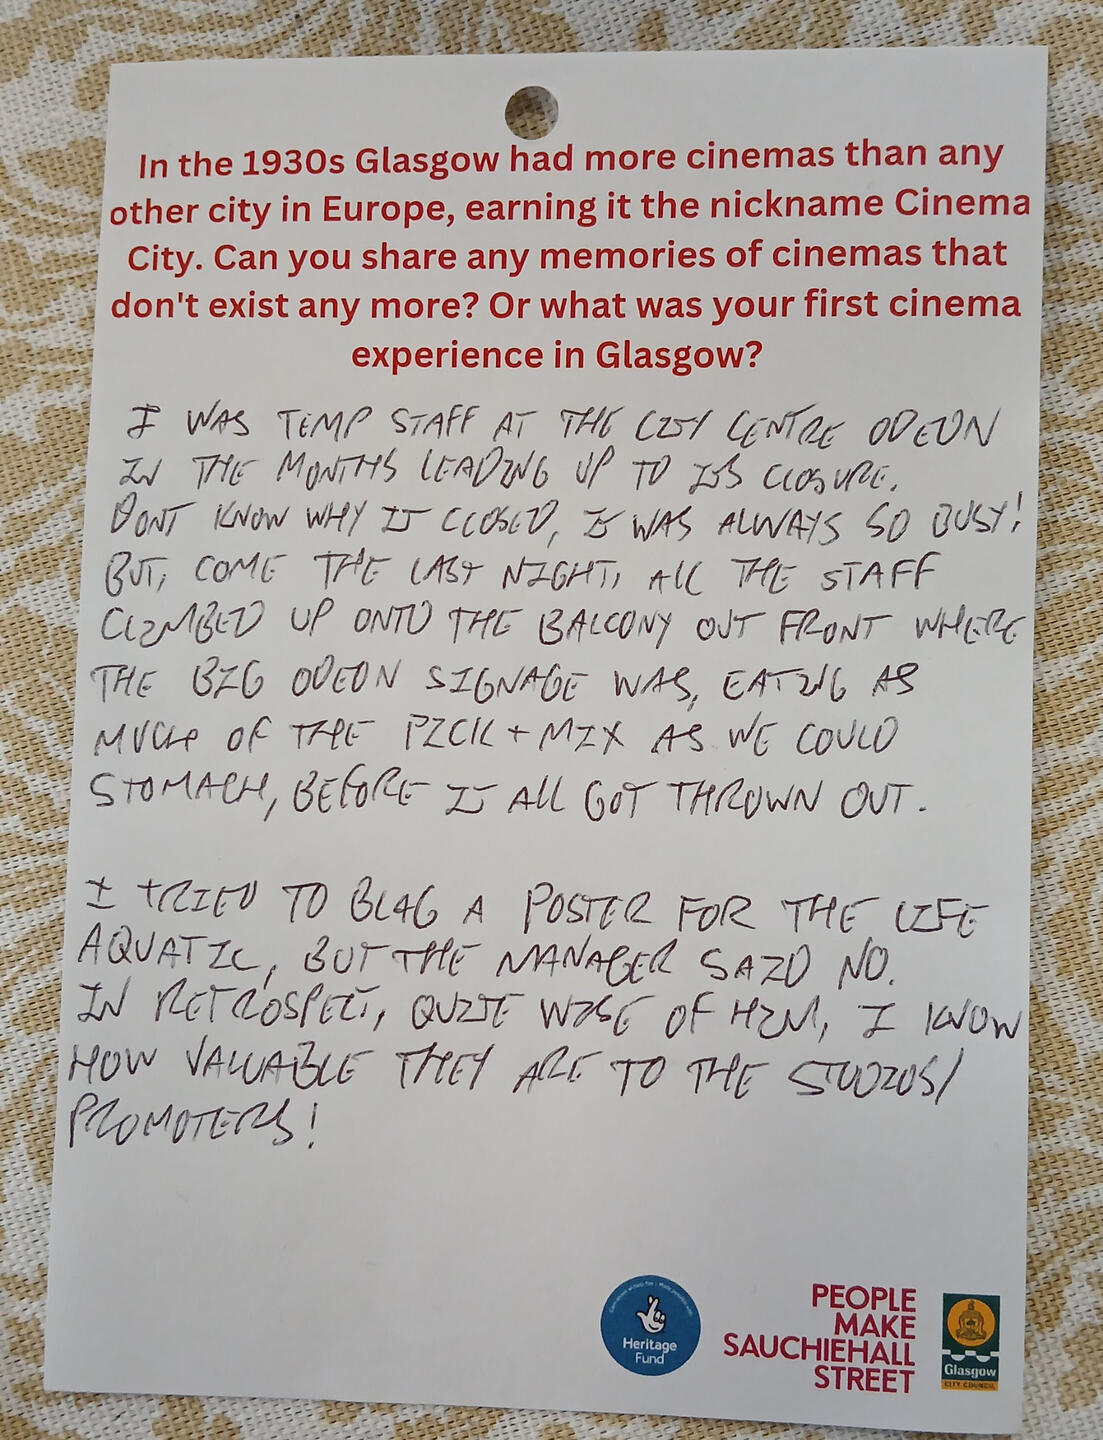 In the 1930s Glasgow had more cinemas than any
other city in Europe, earning it the nickname Cinema
City. Can you share any memories of cinemas that
don't exist any more? Or what was your first cinema
experience in Glasgow?
I WAS TEMP STAFF AT THE CITY CENTRE ODEON
IN THE MONTHS LEADING UP TO ITS CLOSURE.
DONT KNOW WHY IT CLOSED, IT WAS ALWAYS SO BUSY!
BUT, COME THE LAST NIGHT, ALL THE STAFF
CLIMBED UP ONTO THE BALCONY OUT FRONT WHERE
THE BIG ODEON SIGNAGE WAS, EATING AS
MUCH OF THE PICK + MIX AS WE COULD
STOMACH, BEFORE IT ALL GOT THROWN OUT.
I TRIED TO BLAG A POSTER FOR THE LIFE
AQUATIC, BUT THE MANAGER SAID NO.
IN RETROSPECT, QUITE WISE OF HIM, I KNOW
HOW VALUABLE THEY ARE TO THE STUDIOS/
PROMOTERS!
Heritage
Fund
PEOPLE
MAKE
SAUCHIEHALL
STREET
Glasgow
CITY COUNCIL